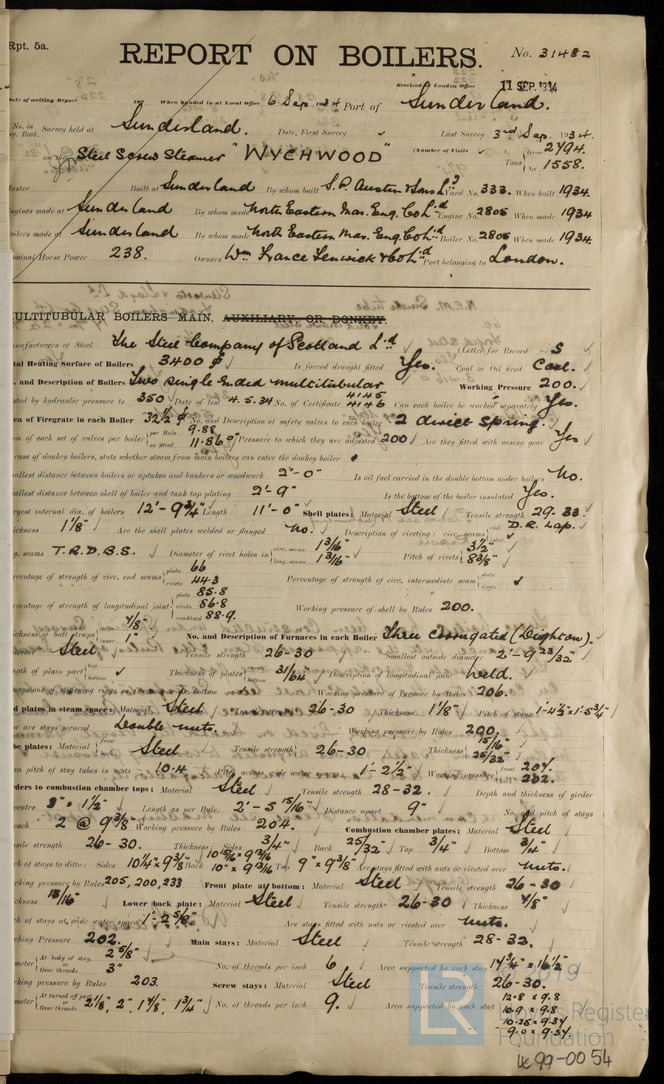 Rpt. 5a.
REPORT ON BOILERS.
No. 31482
Received at London Office 11 SEP. 1934
Date of writing Report 19 When handed in at Local Office 6 Sep. 1934 Port of Sunderland.
No. in Survey held at Sunderland. Date, First Survey Last Survey 3rd Sep. 1934.
Reg. Book.
on the Steel Screw Steamer "WYCHWOOD" (Number of Visits ) Gross 2794.
Tons Net 1558.
Master Built at Sunderland By whom built S.P. Austin & Sons Ld Yard No. 333. When built 1934.
Engines made at Sunderland By whom made North Eastern Mar. Eng. Co Ld Engine No. 2805 When made 1934
Boilers made at Sunderland By whom made North Eastern Mar. Eng. Co Ld Boiler No. 2805 When made 1934.
Nominal Horse Power 238. Owners Wm France Fenwick & Co Ld Port belonging to London.
MULTITUBULAR BOILERS MAIN, AUXILIARY, OR DONKEY.
Manufacturers of Steel The Steel Company of Scotland Ld (Letter for Record S
Total Heating Surface of Boilers 3400 Is forced draught fitted Yes. Coal or Oil fired Coal.
No. and Description of Boilers Two single ended multitubular Working Pressure 200.
Tested by hydraulic pressure to 350 Date of test 4.5.34 No. of Certificate 4145 4146 Can each boiler be worked separately Yes.
Area of Firegrate in each Boiler 32½ No. and Description of safety valves to each boiler 2 direct spring.
Area of each set of valves per boiler per Rule 9.88 as fitted 11.86 Pressure to which they are adjusted 200 Are they fitted with easing gear Yes
In case of donkey boilers, state whether steam from main boilers can enter the donkey boiler
Smallest distance between boilers or uptakes and bunkers or woodwork 2'-0" Is oil fuel carried in the double bottom under boilers No.
Smallest distance between shell of boiler and tank top plating 2'-9" Is the bottom of the boiler insulated Yes.
Largest internal dia. of boilers 12'-9¾" Length 11'-0" Shell plates: Material Steel Tensile strength 29.33
Thickness 1⅛" Are the shell plates welded or flanged No. Description of riveting: circ. seams end D.R. Lap.
long. seams T.R.D.B.S. Diameter of rivet holes in circ. seams 1 3/16" long. seams 1 3/16" Pitch of rivets 3½" 8⅜"
Percentage of strength of circ. end seams plate 66 rivets 44.3 Percentage of strength of circ. intermediate seam plate rivets
Percentage of strength of longitudinal joint plate 85.8 rivets 86.8 combined 88.9. Working pressure of shell by Rules 200.
Thickness of butt straps outer ⅞" inner 1" No. and Description of Furnaces in each Boiler Three corrugated (Deighton).
Material Steel Tensile strength 26-30 Smallest outside diameter 2'-9 23/32"
Length of plain part top bottom Thickness of plates 31/64" Description of longitudinal joint Weld.
Dimensions of stiffening rings on furnace or c.c. bottom Working pressure of furnace by Rules 206.
End plates in steam space: Material Steel Tensile strength 26-30 Thickness 1⅛" Pitch of stays 1'-4½" x 1'-5¾"
How are stays secured Double nuts. Working pressure by Rules 200.
Tube plates: Material front back Steel Tensile strength 26-30 Thickness 15/16" 25/32"
Mean pitch of stay tubes in nests 10.4 Pitch across wide water spaces 1'-2½" Working pressure front 204. back 202.
Girders to combustion chamber tops: Material Steel Tensile strength 28-32. Depth and thickness of girder
at centre 8" @ 1½" Length as per Rule 2'-5 15/16" Distance apart 9" No. and pitch of stays
in each 2 @ 9⅜" Working pressure by Rules 204. Combustion chamber plates: Material Steel
Tensile strength 26-30. Thickness Sides ¾" Back 25/32" Top ¾" Bottom ¾"
Pitch of stays to ditto: Sides 10¼" x 9⅜" Back Top 9" x 9⅜" Are stays fitted with nuts or riveted over Nuts.
Working pressure by Rules 205, 200, 233 Front plate at bottom: Material Steel Tensile strength 26-30
Thickness 15/16" Lower back plate: Material Steel Tensile strength 26-30 Thickness ⅞"
Pitch of stays at wide water space 1'-2⅝" Are stays fitted with nuts or riveted over Nuts.
Working Pressure 202. Main stays: Material Steel Tensile strength 28-32.
Diameter At body of stay, or Over threads 2⅝" 3" No. of threads per inch 6 Area supported by each stay 17¾" x 16½"
Working pressure by Rules 203. Screw stays: Material Steel Tensile strength 26-30.
Diameter At turned off part, or Over threads 2⅛", 2", 1⅞", 1¾" No. of threads per inch 9. Area supported by each stay 12.8 x 9.8
10.9 x 9.8
10.25 x 9.37
9.0 x 9.37
LR
2019
Lloyd's Register
Foundation
LRF 99-0054